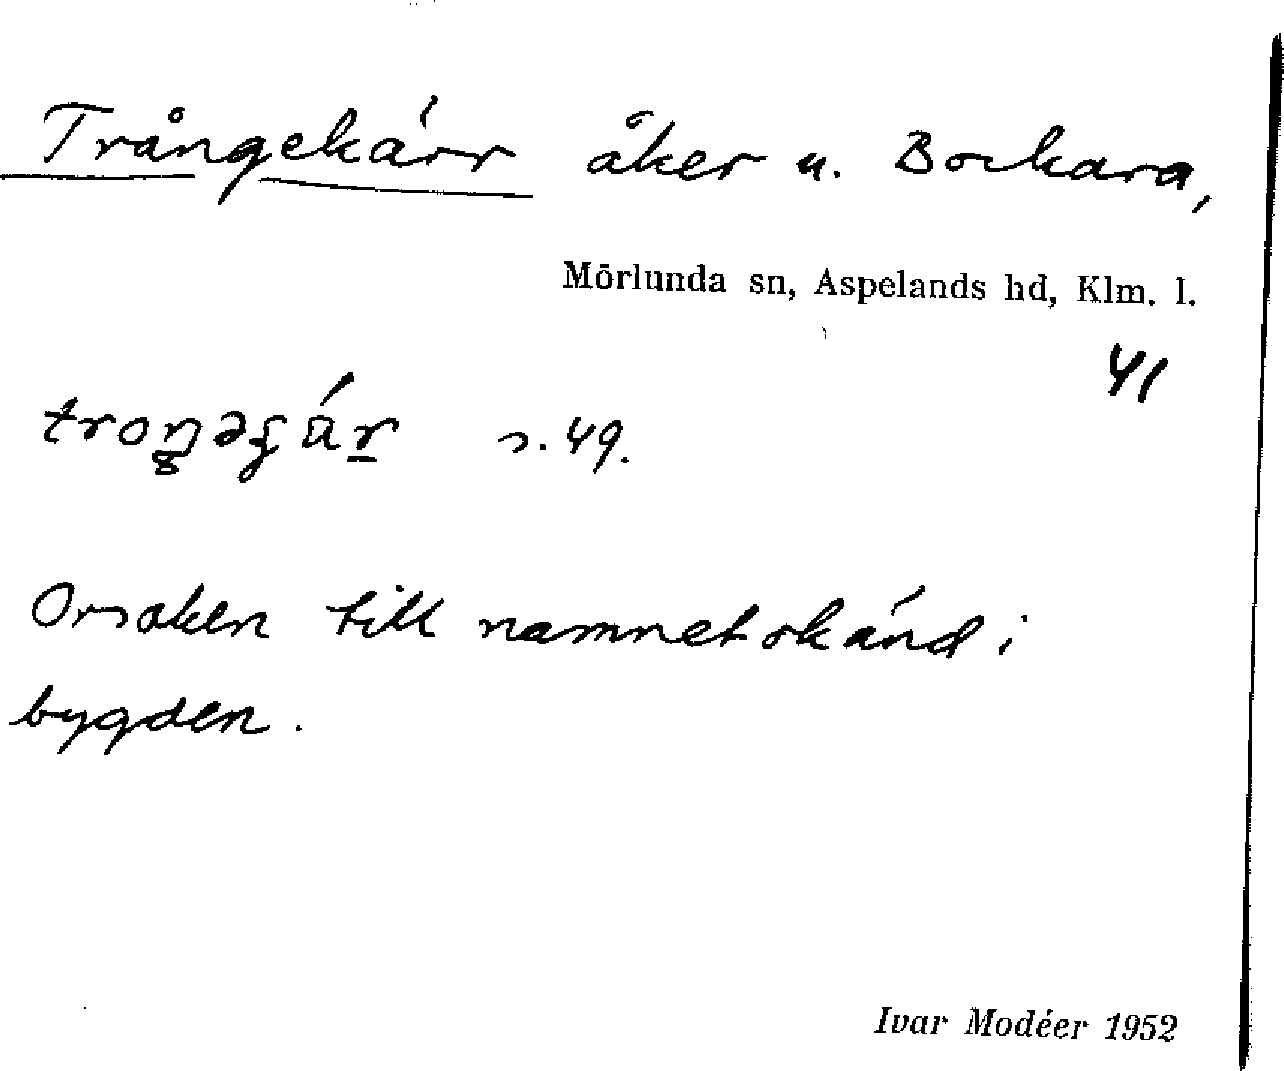 Trångekärr åker u. Bockara,
Mörlunda sn, Aspelands hd, Klm. l.
41
s. 49.
Orsaken till namnet okänd i
bygden.
Ivar Modéer 1952